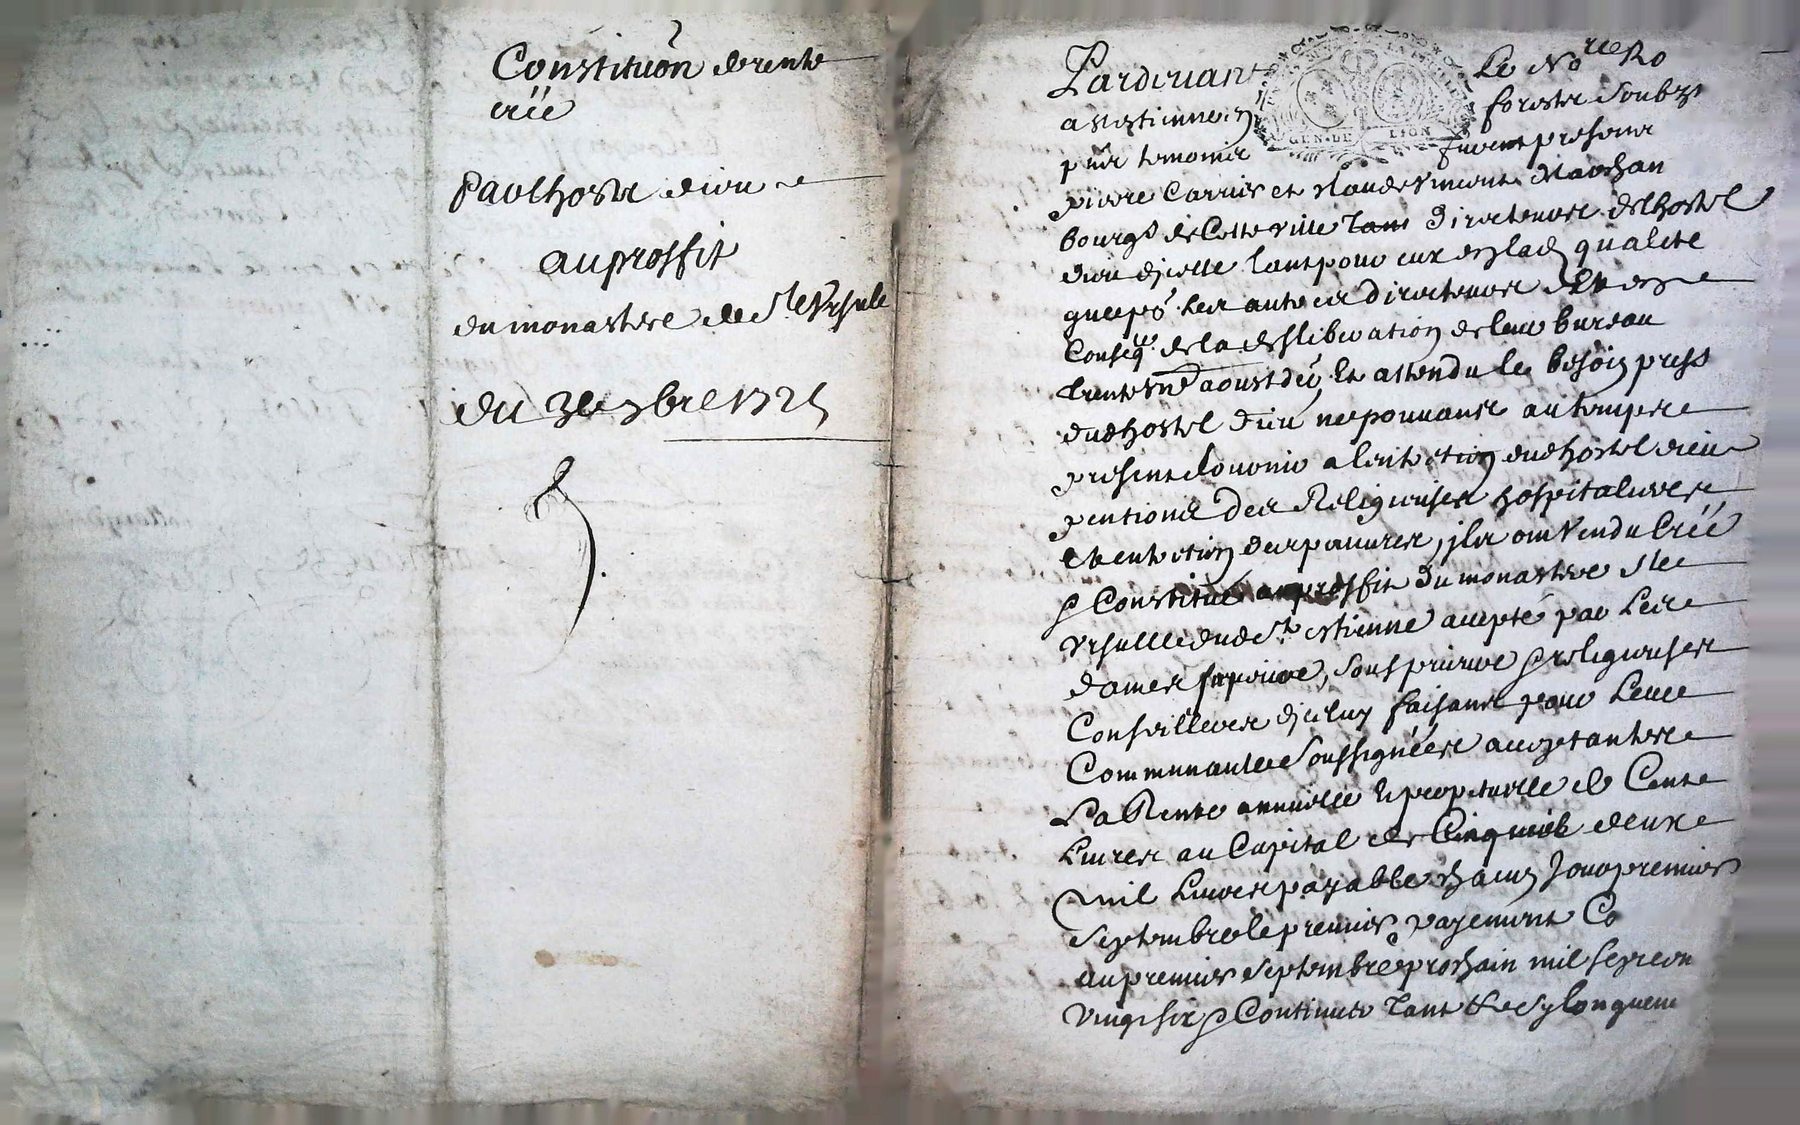 Constituōn de rente
créé
Par lhostel dieu
au proffit
du monastere de Ste Vrsule
du 3e 7bre 1725
Pardeuant Le Nore Ro
a St estienne en forests soubzs
pnts temoins furent presents
pierre Carrier et claude vincent Marchan
bourgs de Cette ville Tant directeurs de lhostel
dieu dicelle tant pour eux en lad. qualite
que pr. les autres directeurs et en
Conseqce. de la desliberation de leur bureau
trente vne aoust der, Et attendu le besoin press
dud hostel dieu ne pouuants au temps
present fournir a lentretien dud hostel dieu
pentions des Religieuses hospitalieres
et entretien des pauures, jls ont Vendu Créé
& Constitué au proffit du monastere Ste
Vrsulle dud St estienne accepté par Les
dames superieure, sousprieure & religieuses
Conseilleres diceluy faisants pour Leur
Communautée Soussignées acceptantes
La Rente annuelle & perpetuelle de Cent
Liures au Capital de deux
mil Liures payable chacun Jour premier
Septembre le premier payement Co
au premier Septembre prochain mil sept cen
Vingt six & Continuer Tant & Sy longuem
GEN·DE LION